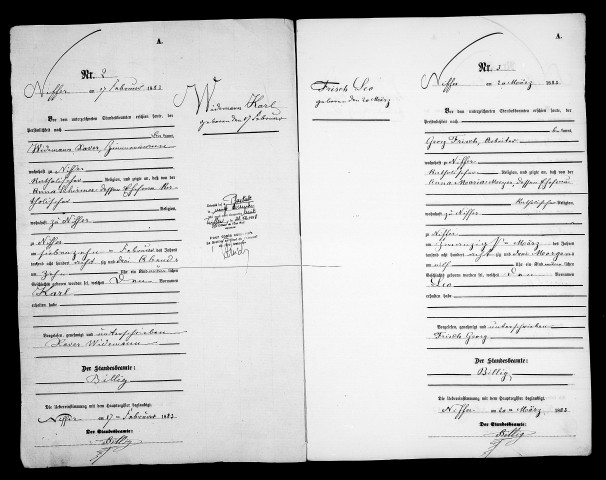 A.
Nr. 2
Niffer am 17 Februar 1883
Vor dem unterzeichneten Standesbeamten erschien heute, der
Persönlichkeit nach
bekannt,
Widemann Xaver, Zimmermann
wohnhaft zu Niffer
katholischer Religion, und zeigte an, daß von der
Anna dessen Ehefrau ka-
tholischer Religion,
wohnhaft zu Niffer
zu Niffer
am siebenzehn ten Februar des Jahres
tausend acht hundert achtzig und drei Abends
um zehn Uhr ein Kind männlichen
Geschlechts geboren worden sei, welches den Vornamen
Karl
erhalten habe
Vorgelesen, genehmigt und unterschrieben
Xaver Widemann
Der Standesbeamte:
Billig
Die Uebereinstimmung mit dem Hauptregister beglaubigt.
Niffer am 17 ten Februar 1883
Der Standesbeamte:
Billig
Widemann Karl
geboren den 17 Februar
Frisch Leo
geboren den 20 März
A.
Nr. 3
Niffer am 20 März 1883
Vor dem unterzeichneten Standesbeamten erschien heute, der
Persönlichkeit nach
bekannt,
Georg Frisch,
wohnhaft zu Niffer
katholischer Religion, und zeigte an, daß von der
Anna Maria dessen Ehefrau
katholischer Religion,
wohnhaft zu Niffer
zu Niffer
am zwanzig ten März des Jahres
tausend acht hundert achtzig und drei Morgens
um Uhr ein Kind männlichen
Geschlechts geboren worden sei, welches den Vornamen
Leo
erhalten habe
Vorgelesen, genehmigt und unterschrieben
Frisch Georg
Der Standesbeamte:
Billig
Die Uebereinstimmung mit dem Hauptregister beglaubigt.
Niffer am 20 ten März 1883
Der Standesbeamte:
Billig